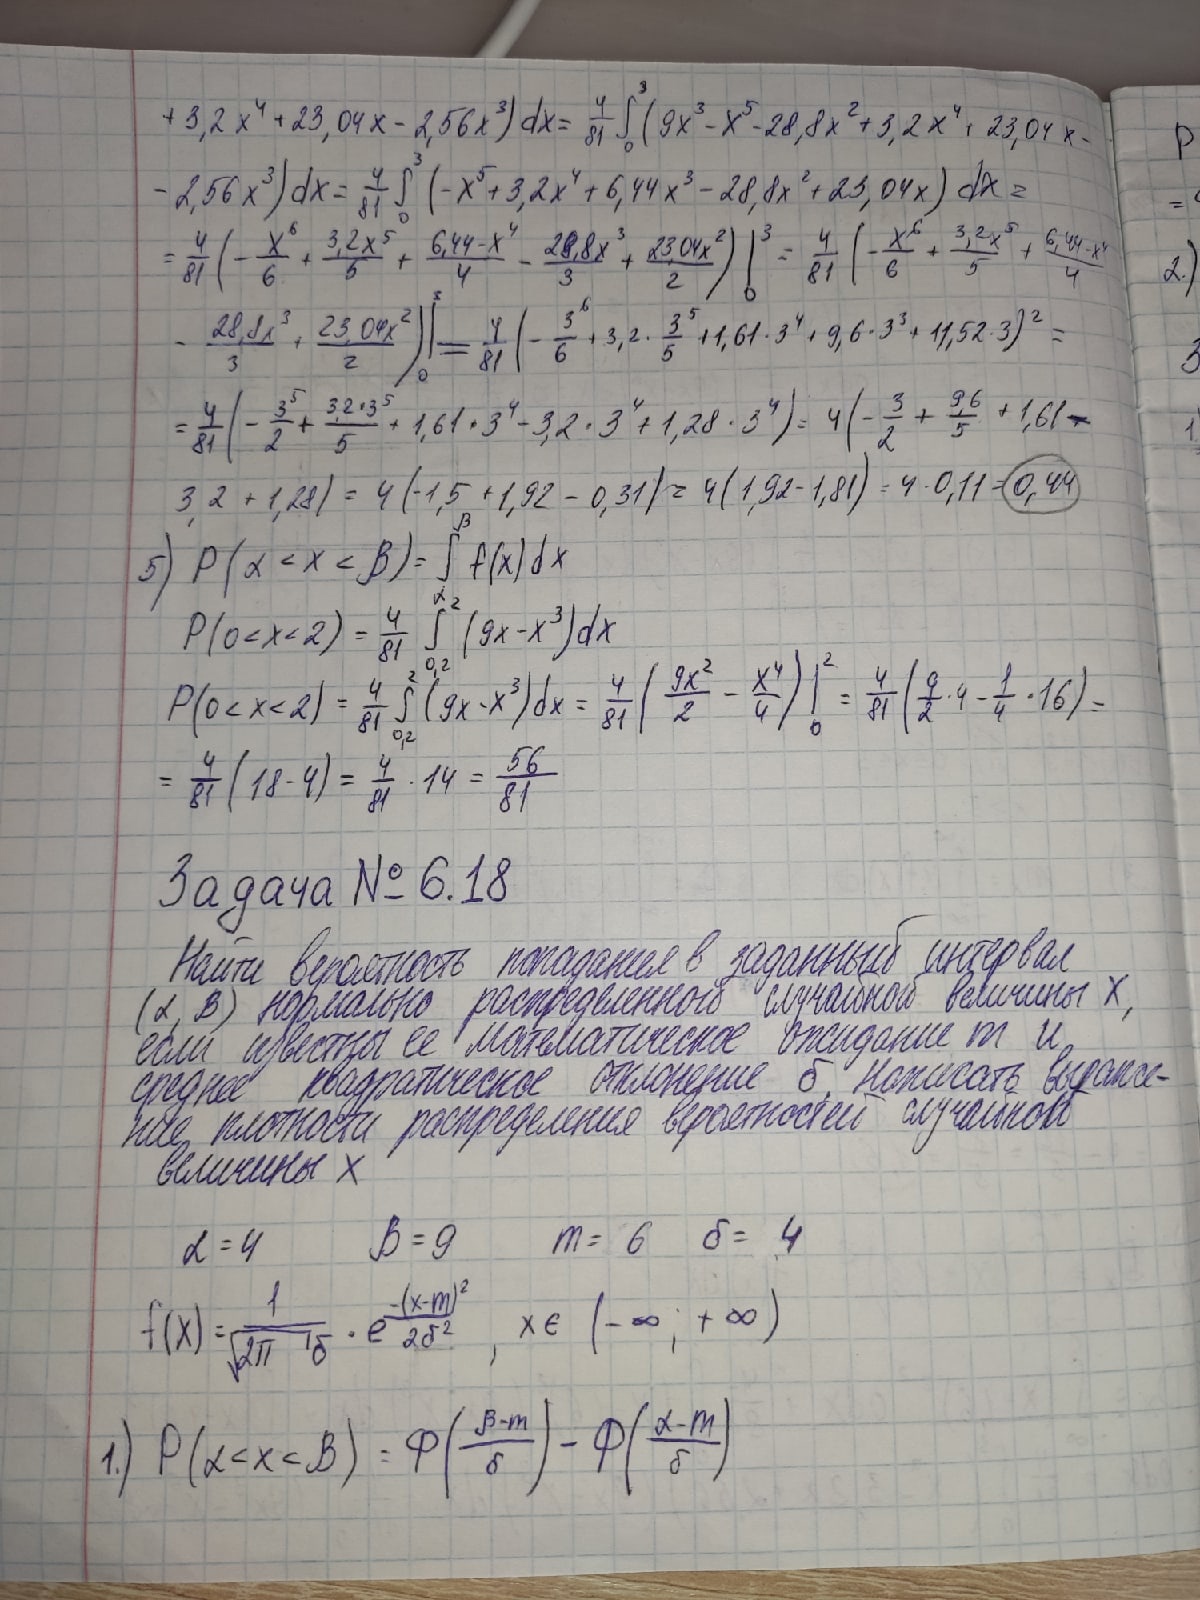 +3,2x⁴+23,04x-2,56x³)dx= 4/81 ∫₀³ (9x³-x⁵-28,8x²+3,2x⁴+23,04x-
-2,56x³)dx= 4/81 ∫₀³ (-x⁵+3,2x⁴+6,44x³-28,8x²+23,04x) dx=
= 4/81 (-x⁶/6 + 3,2x⁵/5 + 6,44-x⁴/4 - 28,8x³/3 + 23,04x²/2)|₀³ = 4/81 (-x⁶/6 + 3,2-x⁵/5 + 6,44-x⁴/4
- 28,8x³/3 + 23,04x²/2)|₀³ = 4/81 (-3⁶/6 +3,2·3⁵/5 +1,61·3⁴+9,6·3³+11,52·3)² =
= 4/81 (-3⁵/2 + 3,2·3⁵/5 + 1,61·3⁴-3,2·3⁴+1,28·3⁴)= 4(-3/2 + 9,6/5 +1,61-
3,2+1,28) = 4(-1,5+1,92-0,31)= 4(1,92-1,81)=4·0,11=0,44
5) P(α<x<β)= ∫_α^β f(x)dx
P(0<x<2) = 4/81 ∫_0,2^2 (9x-x³)dx
P(0<x<2) = 4/81 ∫_0,2^2 (9x-x³)dx = 4/81 (9x²/2 - x⁴/4)|₀² = 4/81 (9/2·4 - 1/4·16) =
= 4/81 (18-4)= 4/81 · 14 = 56/81
Задача № 6.18
Найти вероятность попадания в заданный интервал
(α, β) нормально распределенной случайной величины X,
если известны ее математическое ожидание m и
среднее квадратическое отклонение б. Написать выраже-
ние плотности распределения вероятностей случайной
величины X
α=4 β=9 m= 6 б= 4
f(x)= 1/√2π б · e^(-(x-m)²/2б²), x∈ (-∞; +∞)
1.) P(α<x<β) = Ф(β-m/б) - Ф(α-m/б)